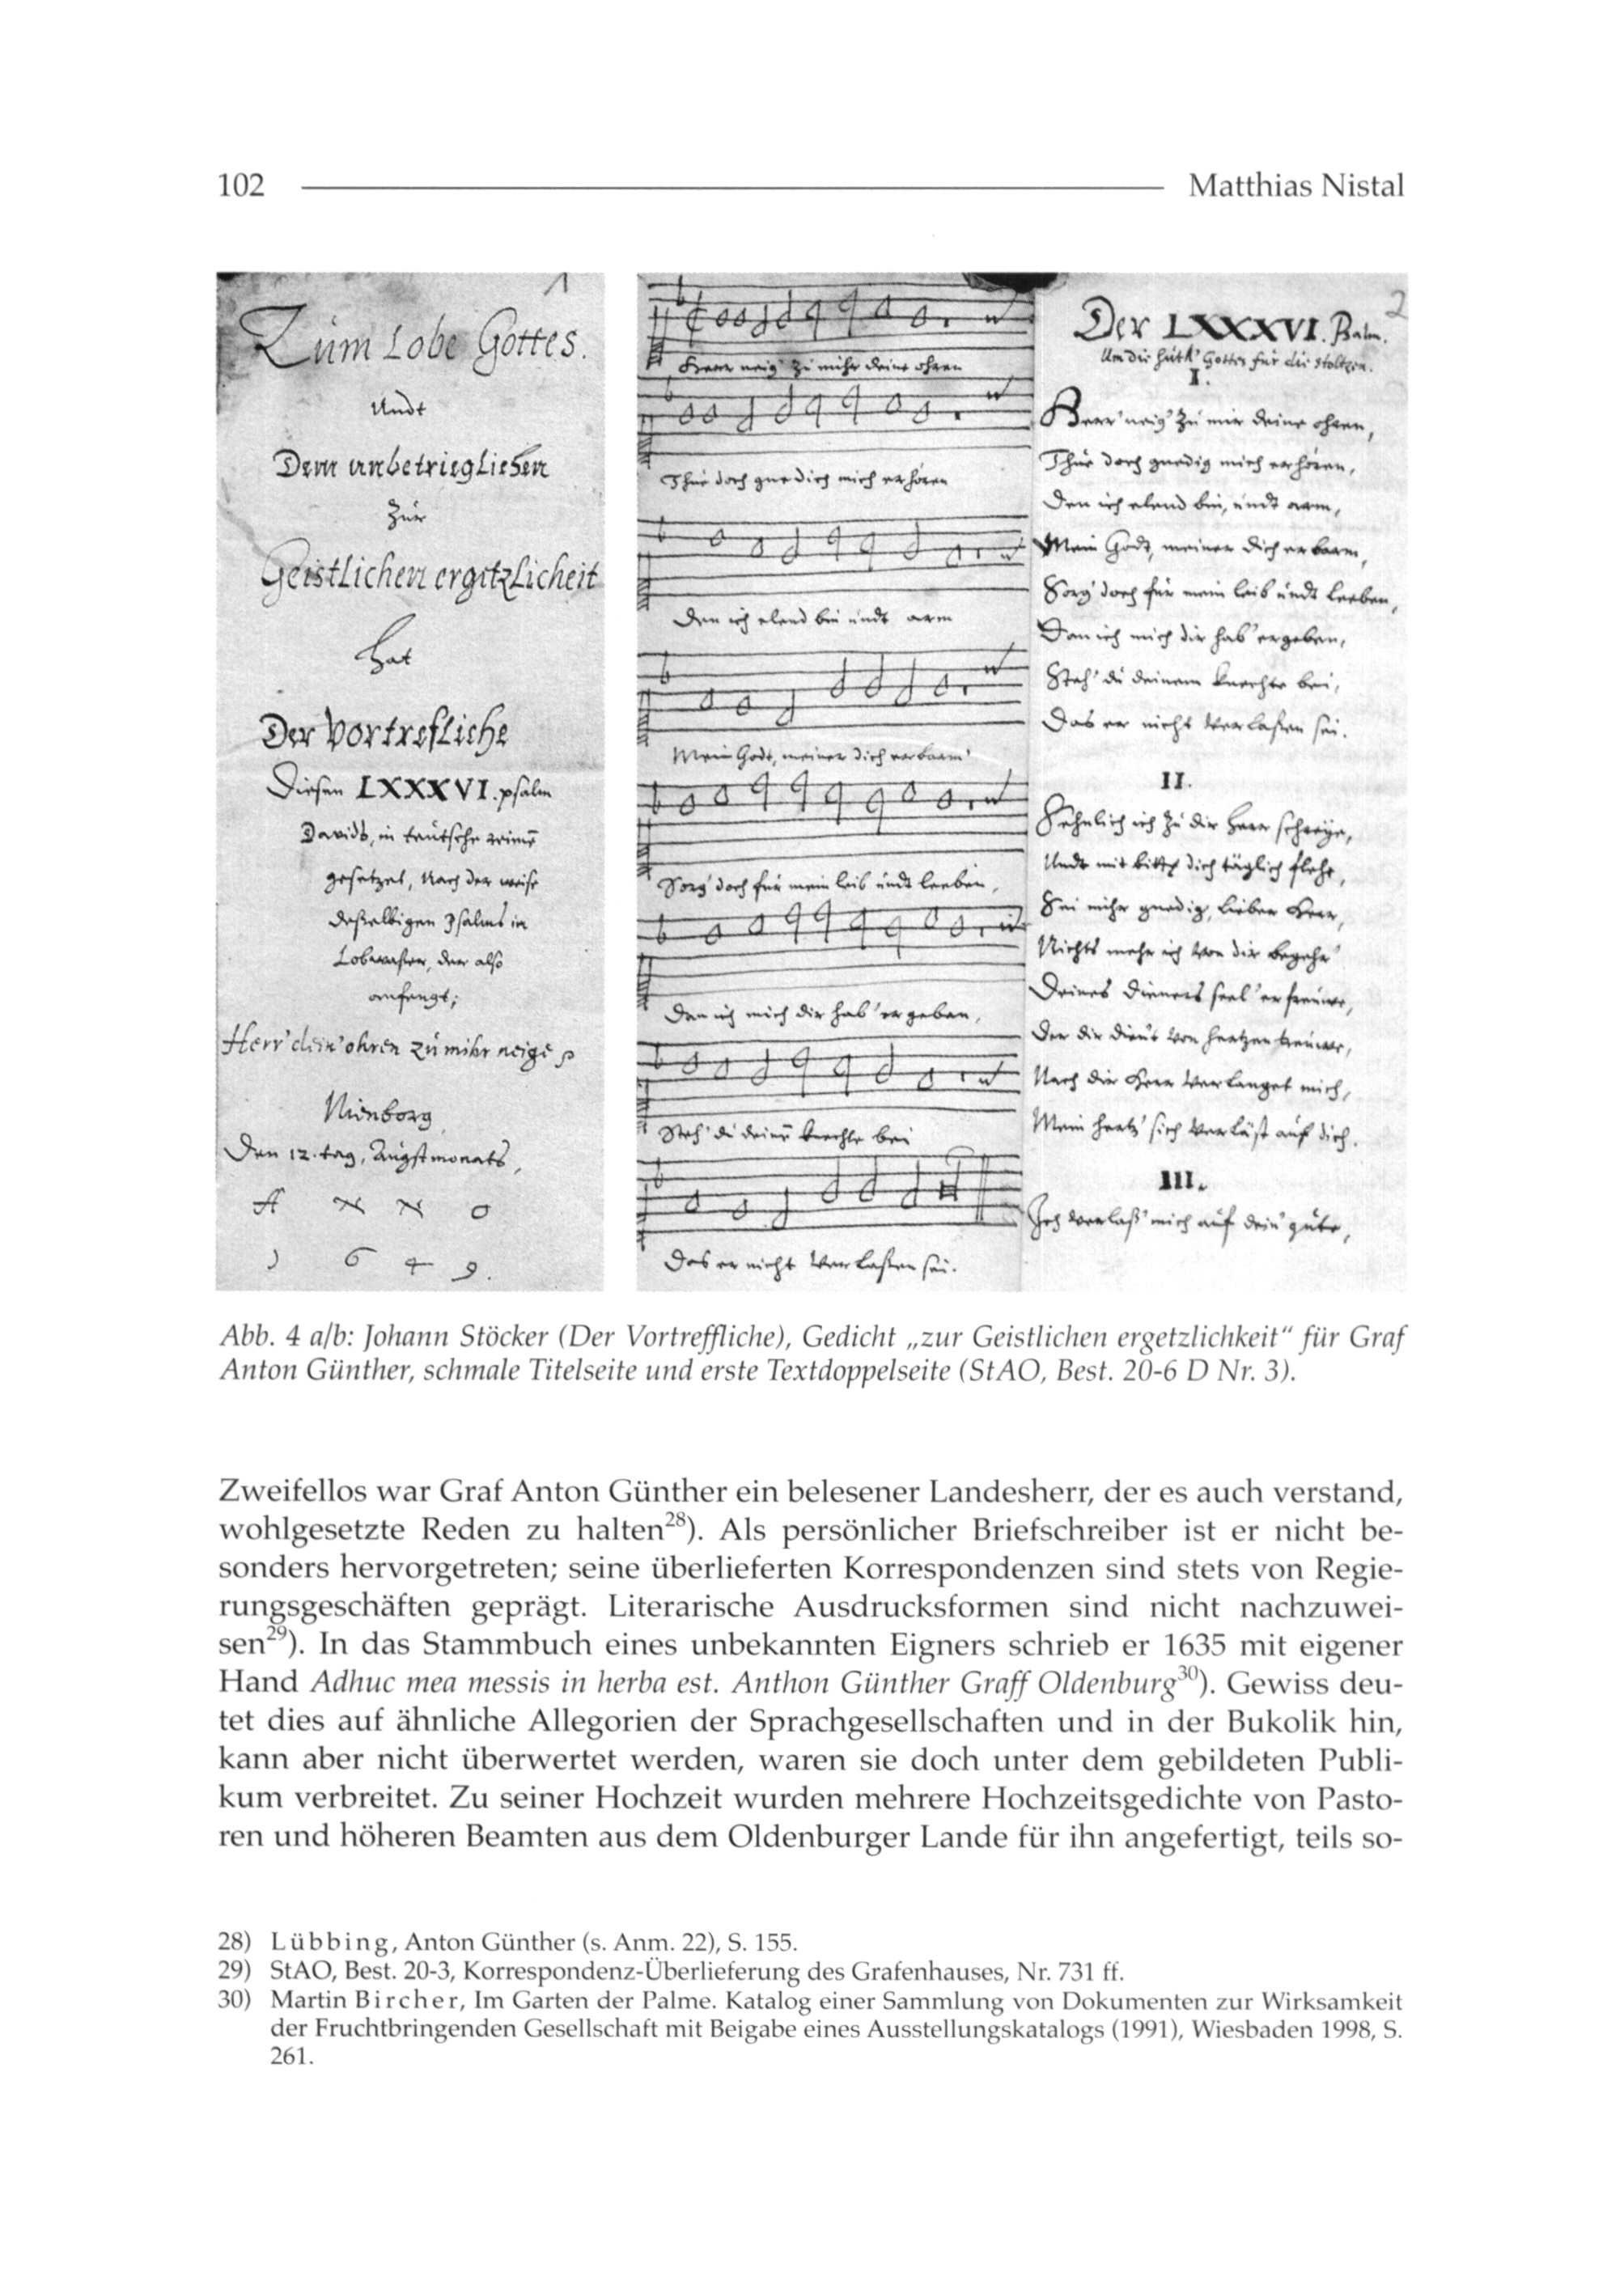 102 Matthias Nistal
1
Zum Lobe Gottes.
Undt
Dem unbetrieglichen
Zur
Geistlichen ergetzlicheit
hat
Der Vortrefliche
Diesen LXXXVI. psalm
Davids, in teutsche reimē
gesetzet, Nach der weise
deßelbigen Psalms in
Lobwaßer, der also
anfengt;
Herr' dein' ohren zu mihr neige
Nienborg
Den 12. tag, Augstmonats,
A N N O
1 6 4 9.
Herr neig' zu mihr deine ohren
Thue doch gnedich mich erhören
Den ich elend bin undt arm
Mein Godt, meiner dich erbarm'
Sorg' doch für mein leib undt leeben,
Dan ich mich dir hab' ergeben,
Steh' du deinē knechte bei
Das er nicht verlaßen sei.
2
Der LXXXVI. Psalm.
Um die huth' Gottes für die stoltzen.
I.
Herr' neig' zu mir deine ohren,
Thue doch gnedig mich erhören,
Den ich elend bin, undt arm,
Mein Godt, meiner dich erbarm,
Sorg' doch für mein leib undt leeben,
Dan ich mich dir hab' ergeben,
Steh' du deinem knechte bei,
Das er nicht verlaßen sei.
II.
Sehnlich ich zu dir Herr schreye,
Undt mit bitten dich täglich flehe,
Sei mihr gnedig, lieber Herr,
Nichts mehr ich von dir begehr'
Deines dieners seel' erfreuwe,
Der dir dient von hertzen treuwe,
Nach dir Herr verlanget mich,
Mein hertz' sich verläst auf dich.
III.
Ich verlaß' mich auf dein' güte,
Abb. 4 a/b: Johann Stöcker (Der Vortreffliche), Gedicht „zur Geistlichen ergetzlichkeit“ für Graf
Anton Günther, schmale Titelseite und erste Textdoppelseite (StAO, Best. 20-6 D Nr. 3).
Zweifellos war Graf Anton Günther ein belesener Landesherr, der es auch verstand,
wohlgesetzte Reden zu halten28). Als persönlicher Briefschreiber ist er nicht be-
sonders hervorgetreten; seine überlieferten Korrespondenzen sind stets von Regie-
rungsgeschäften geprägt. Literarische Ausdrucksformen sind nicht nachzuwei-
sen29). In das Stammbuch eines unbekannten Eigners schrieb er 1635 mit eigener
Hand Adhuc mea messis in herba est. Anthon Günther Graff Oldenburg30). Gewiss deu-
tet dies auf ähnliche Allegorien der Sprachgesellschaften und in der Bukolik hin,
kann aber nicht überwertet werden, waren sie doch unter dem gebildeten Publi-
kum verbreitet. Zu seiner Hochzeit wurden mehrere Hochzeitsgedichte von Pasto-
ren und höheren Beamten aus dem Oldenburger Lande für ihn angefertigt, teils so-
28) Lübbing, Anton Günther (s. Anm. 22), S. 155.
29) StAO, Best. 20-3, Korrespondenz-Überlieferung des Grafenhauses, Nr. 731 ff.
30) Martin Bircher, Im Garten der Palme. Katalog einer Sammlung von Dokumenten zur Wirksamkeit
der Fruchtbringenden Gesellschaft mit Beigabe eines Ausstellungskatalogs (1991), Wiesbaden 1998, S.
261.